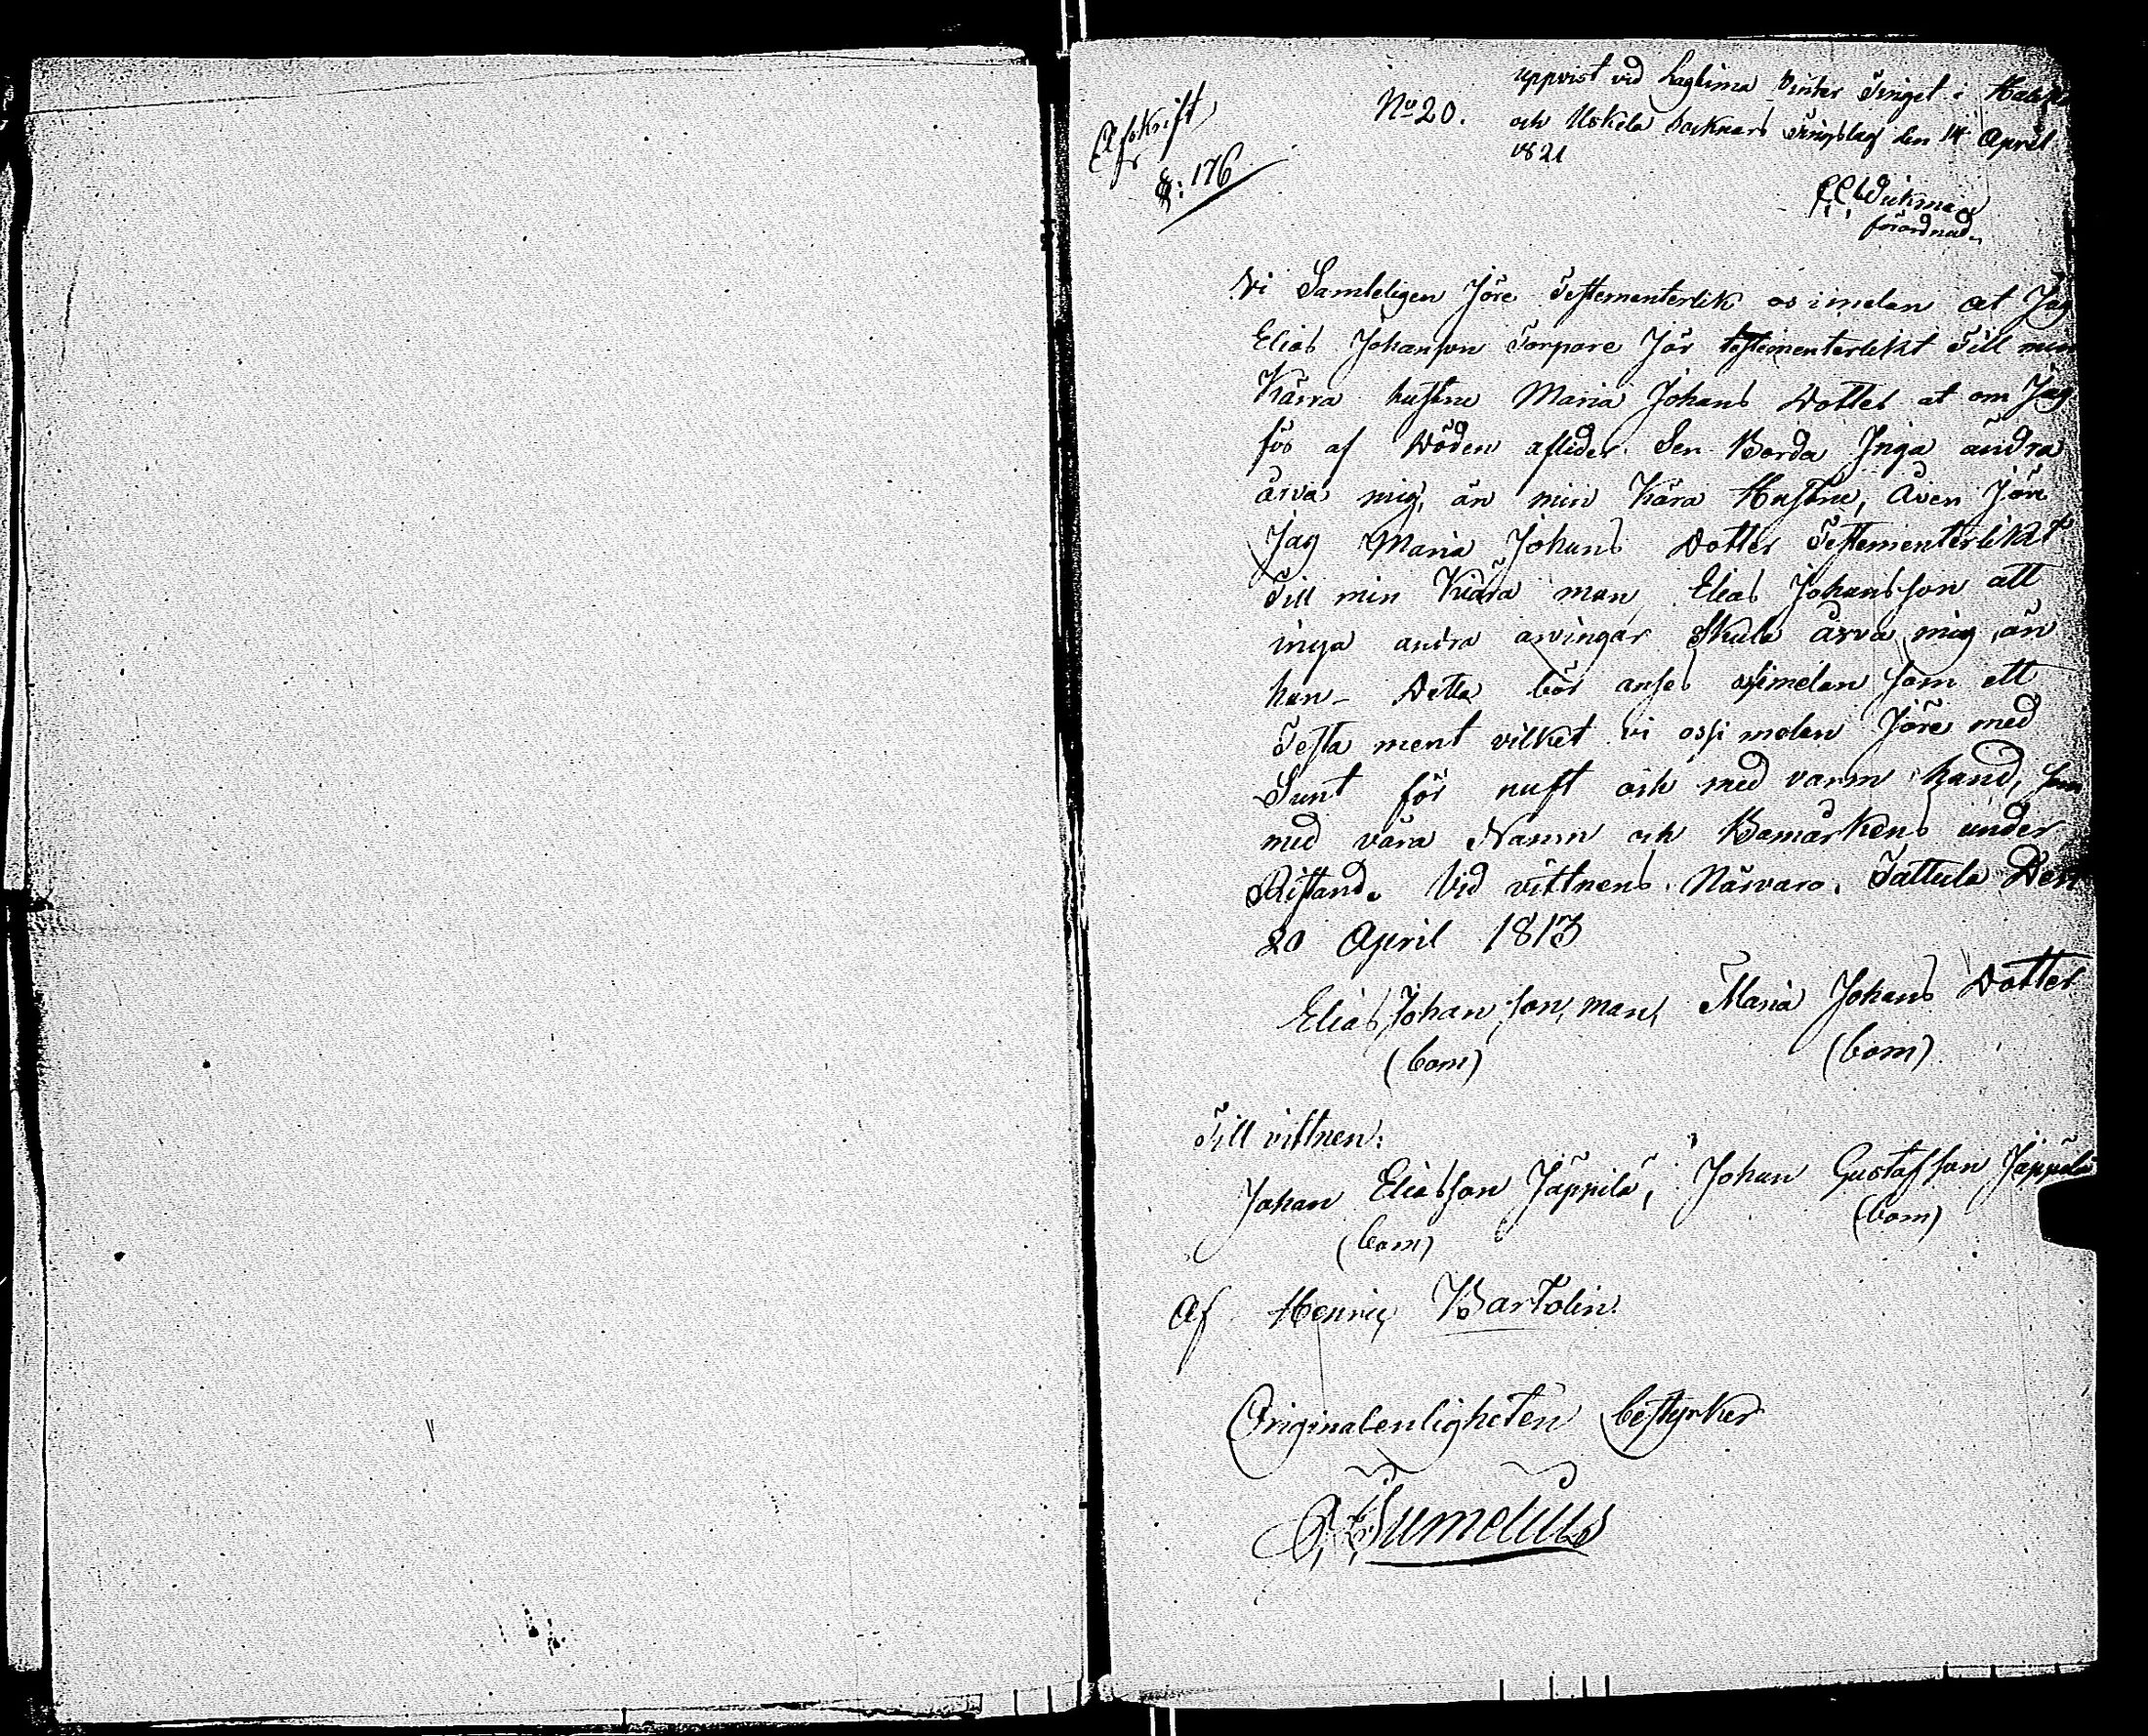 Afskrift
§: 176
No 20.
uppvist vid Laglima Vinter Tinget i
och Uskela Socknars Tingslag den 14 April
1821
förordnad.
Vi Samteligen Jöre Testementerlik os imelan at Jag
Elias Johanson Torpare Jör testementerlikt Till min
Kärra hustru Maria Johans Dotter at om Jag
för af Döden aflider. Sen Borda Inga andra
ärva mig, än min Kära Hustru, Även Jöre
Jag Maria Johans Dotter Testementerlikt
Till min Kiära man Elias Johansson att
inga andra arvingar Skula ärva mig än
han – Detta bör anses ossimelan som ett
Testa ment vilket vi ossi melan Jöre med
Sunt för nuft och med varm hand, som
med våra Namn och Bomärkens under
Ristand. Vid vittnens Närvaro. Tattula Den
20 April 1813
Elias Johan son, man, Maria Johans Dotter
(bom) (bom)
Till vittnen:
Johan Eliasson Jäppilä, Johan Gustafsson Jäppilä
(bom) (bom)
Af Henric Bartolin.
Originalenligheten bestyrker